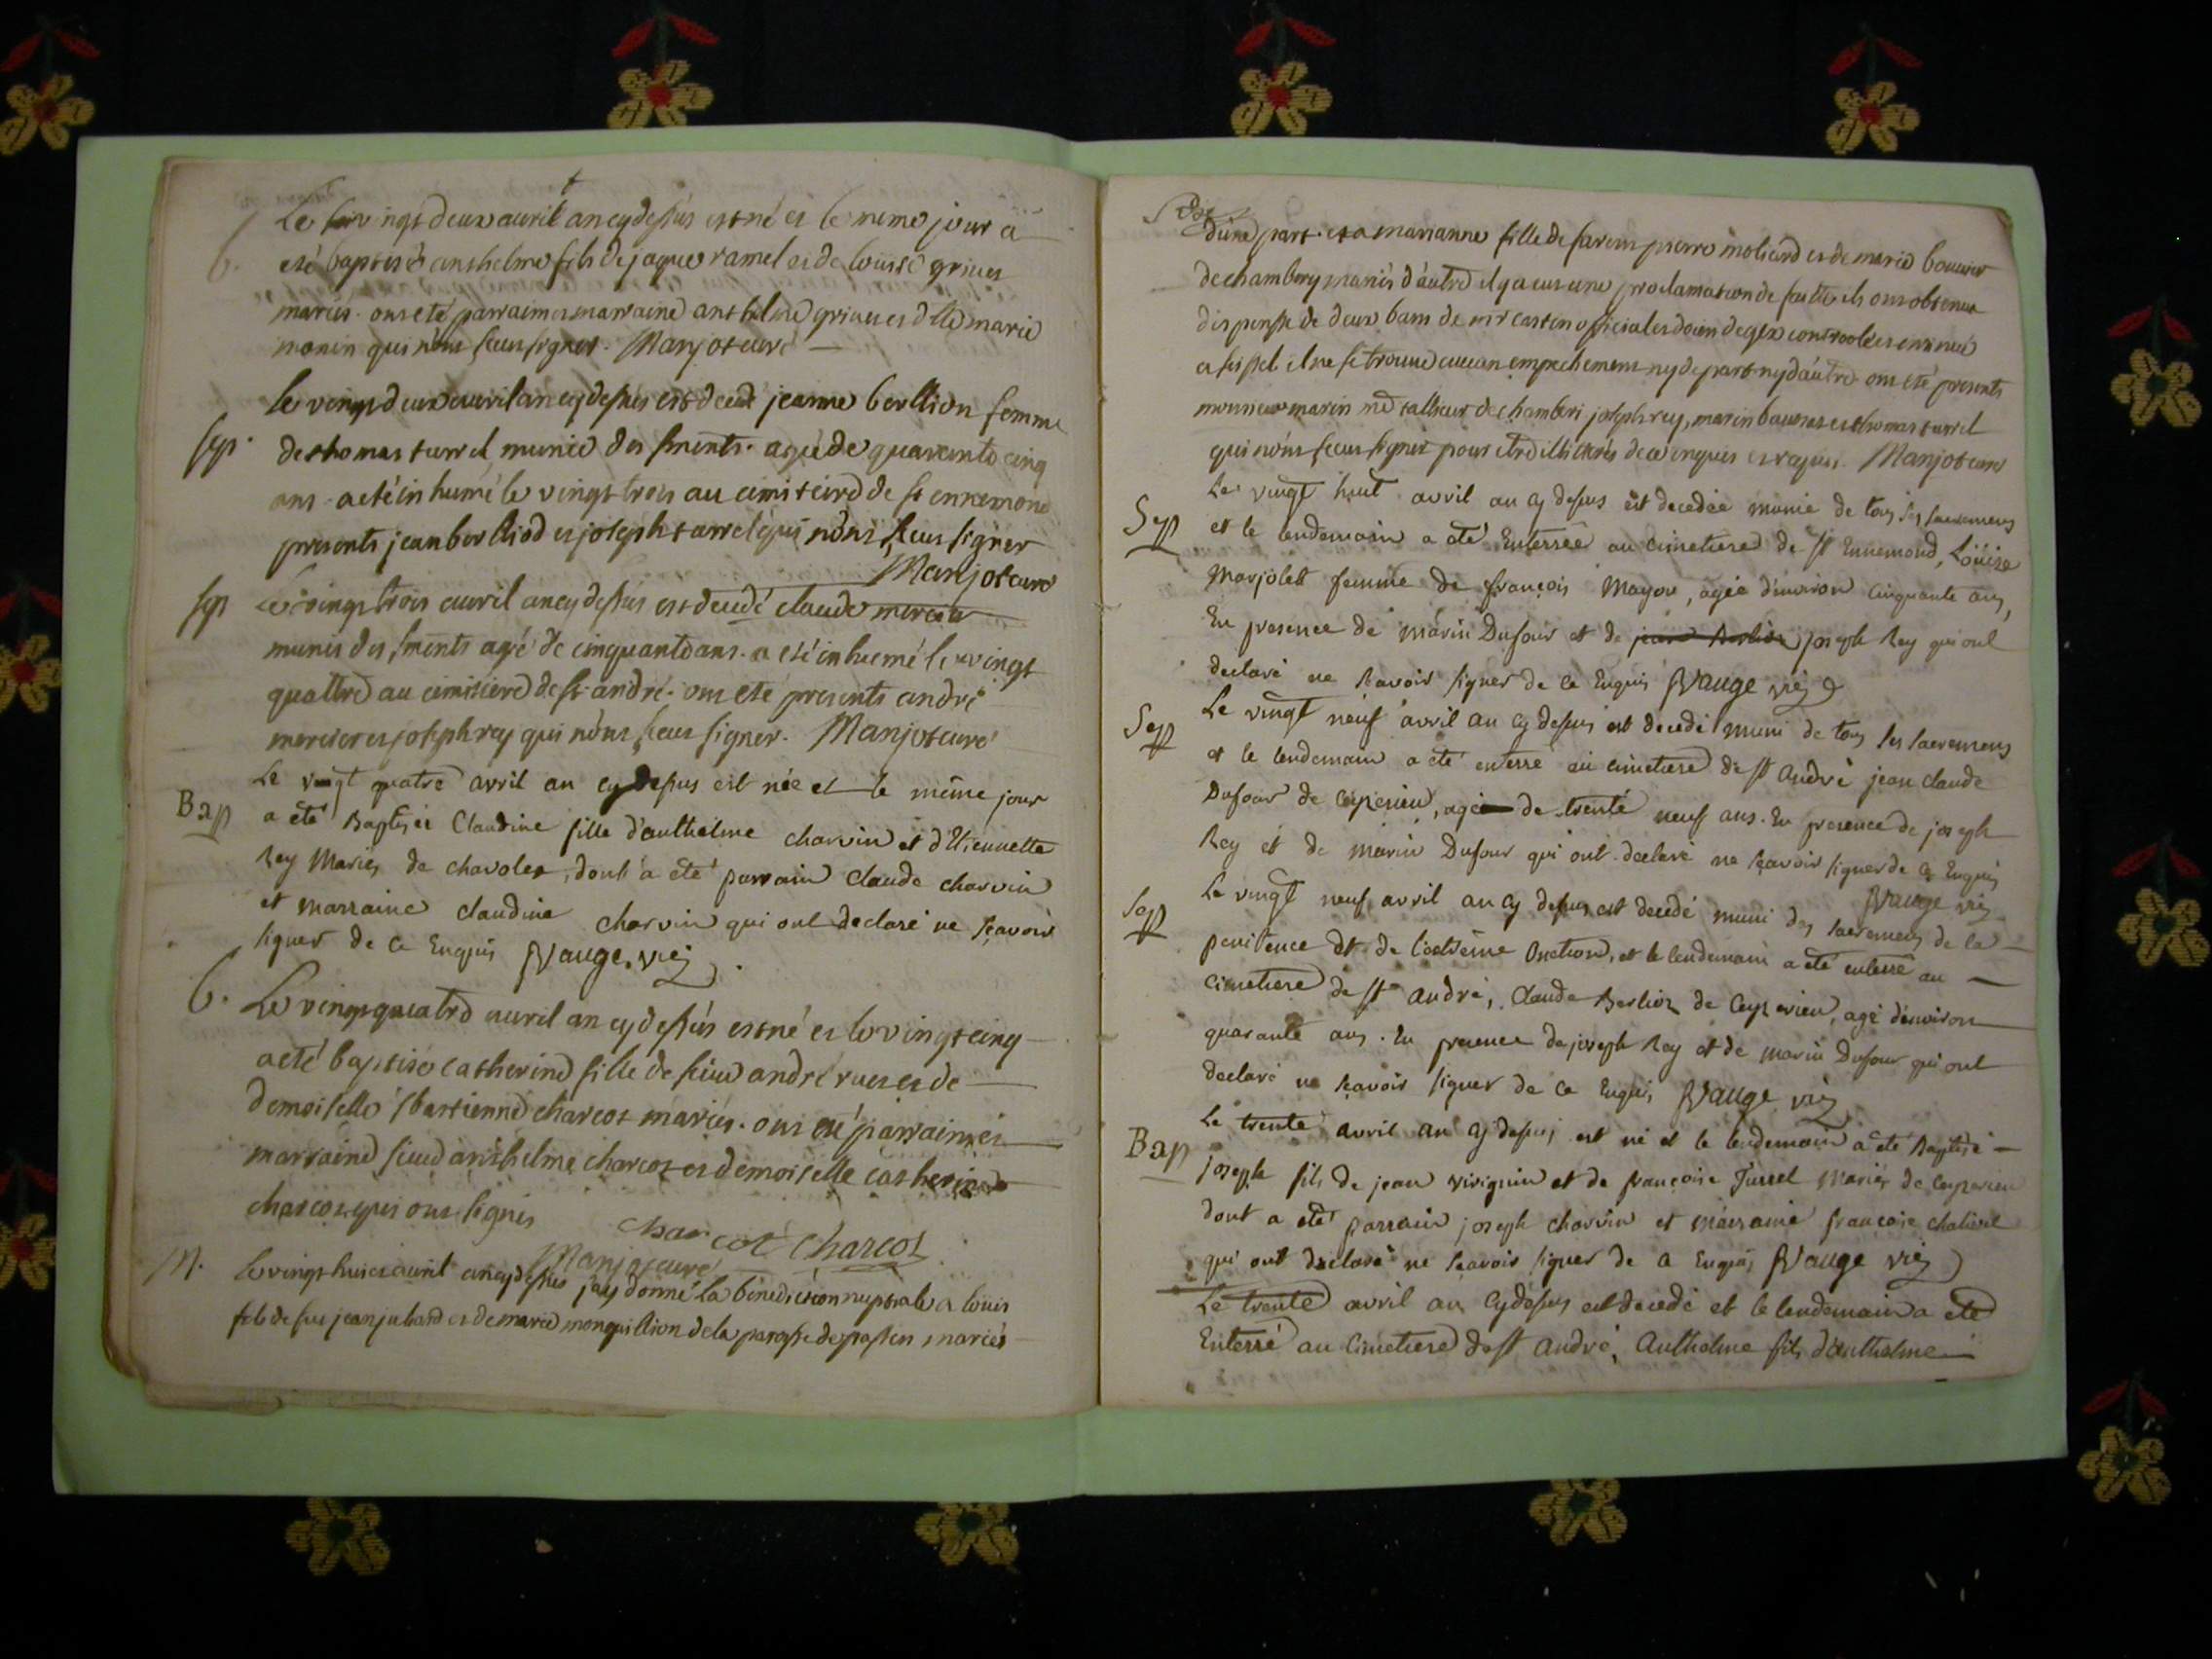 Le vingt deux auril an cy dessus est né et le meme jour a
b. eté baptisé anthelme fils de jaque ramel et de louise griuet
mariés. ont eté parrain et marraine anthelme griuet et dlle marie
monin qui n'ont sceu signer. Manjot curé
le vingt deux auril an cy dessus est decedé jeanne berllion femme
sep. de thomas turrel, munie des sments. agée de quarente cinq
ans. a eté inhumé le vingt trois au cimitierd de st ennemond
presents jean berlliod et joseph turrel qui n'ont sceu signer
Manjot curé
sep Le vingt trois auril an cy dessus est decedé claude mercier
munis des sments agé de cinquante ans. a eté inhumé le vingt
quattre au cimitiere de st. andré. ont eté presents andré
mercier et joseph rey qui n'ont sceu signer. Manjot curé
Le vingt quatre avril an cy dessus est née et le même jour
Bap a été Baptisée Claudine fille d'anthelme charvin et d'Etiennette
Rey Mariés de chavoley, dont a été parrain claude charvin
et marraine claudine charvin qui ont declaré ne sçavoir
signer de ce Enquis Vauge vic.
b. Le vingt quatre auril an cy dessus est né et le vingt cinq
a eté baptisé catherine fille de sieur andré ruet et de
demoiselle sbastienne charcot mariés. ont eté parrain et
marraine sieur anthelme charcot et demoiselle catherine
charcot qui ont signés charcot Charcot
Manjot curé
M. le vingt huict auril an cy dessus jay donné la bénédiction nuptiale a louis
fils de feu jean jubard et de marie monquillion de la parosse de passin mariés
d'une part. et a marianne fille de pierre moliard et de marie bouuier
de chambery mariés d'autre il y a eu une proclamation de faitte ils ont obtenu
dispense de deux bans de mr castin official et doien de gex controolé et insinué
a seissel il ne se trouue aucun empechement ny de part ny d'autre ont eté presents
monsieur marin md tallieur de chamberi joseph rey, marin baussat et thomas turrel
qui n'ont sceu signer pour etre illiterés de ce enquis et requis. Manjot curé
Le vingt huit avril an cy dessus est decedée munie de tous ses sacremens
Sep et le lendemain a été Enterrée au cimetiere de st Ennemond, Loüise
Marjolet femme de françois Mayou, agée d'environ cinquante ans,
En presence de marin Dufour et de jean Berlioz joseph Rey qui ont
declaré ne sçavoir signer de ce Enquis Vauge vic
Le vingt neuf avril an cy dessus est decedé muni de tous ses sacremens
Sep et le lendemain a été enterré au cimetiere de st André jean claude
Dufour de Ceyzerieu, agé de trente neuf ans. En presence de joseph
Rey et de marin Dufour qui ont declaré ne sçavoir signer de ce Enquis
Vauge vic
Le vingt neuf avril an cy dessus est decedé muni des sacremens de la
Sep penitence et de l'extrême Onction, et le lendemain a été enterré au
cimetiere de st André, Claude Berlioz de Ceyzerieu, agé d'environ
quarante ans. En presence de joseph Rey et de marin Dufour qui ont
declaré ne sçavoir signer de ce Enquis Vauge vic
Le trente avril an cy dessus est né et le lendemain a été Baptisé
Bap joseph fils de jean virignin et de françoise Turrel Mariés de Ceyzerieu
dont a été parrain joseph charvin et marraine françoise chalivet
qui ont declaré ne sçavoir signer de ce Enquis Vauge vic
Le trente avril an cy dessus est decedé et le lendemain a eté
Enterré au Cimetiere de st André, Anthelme fils d'anthelme